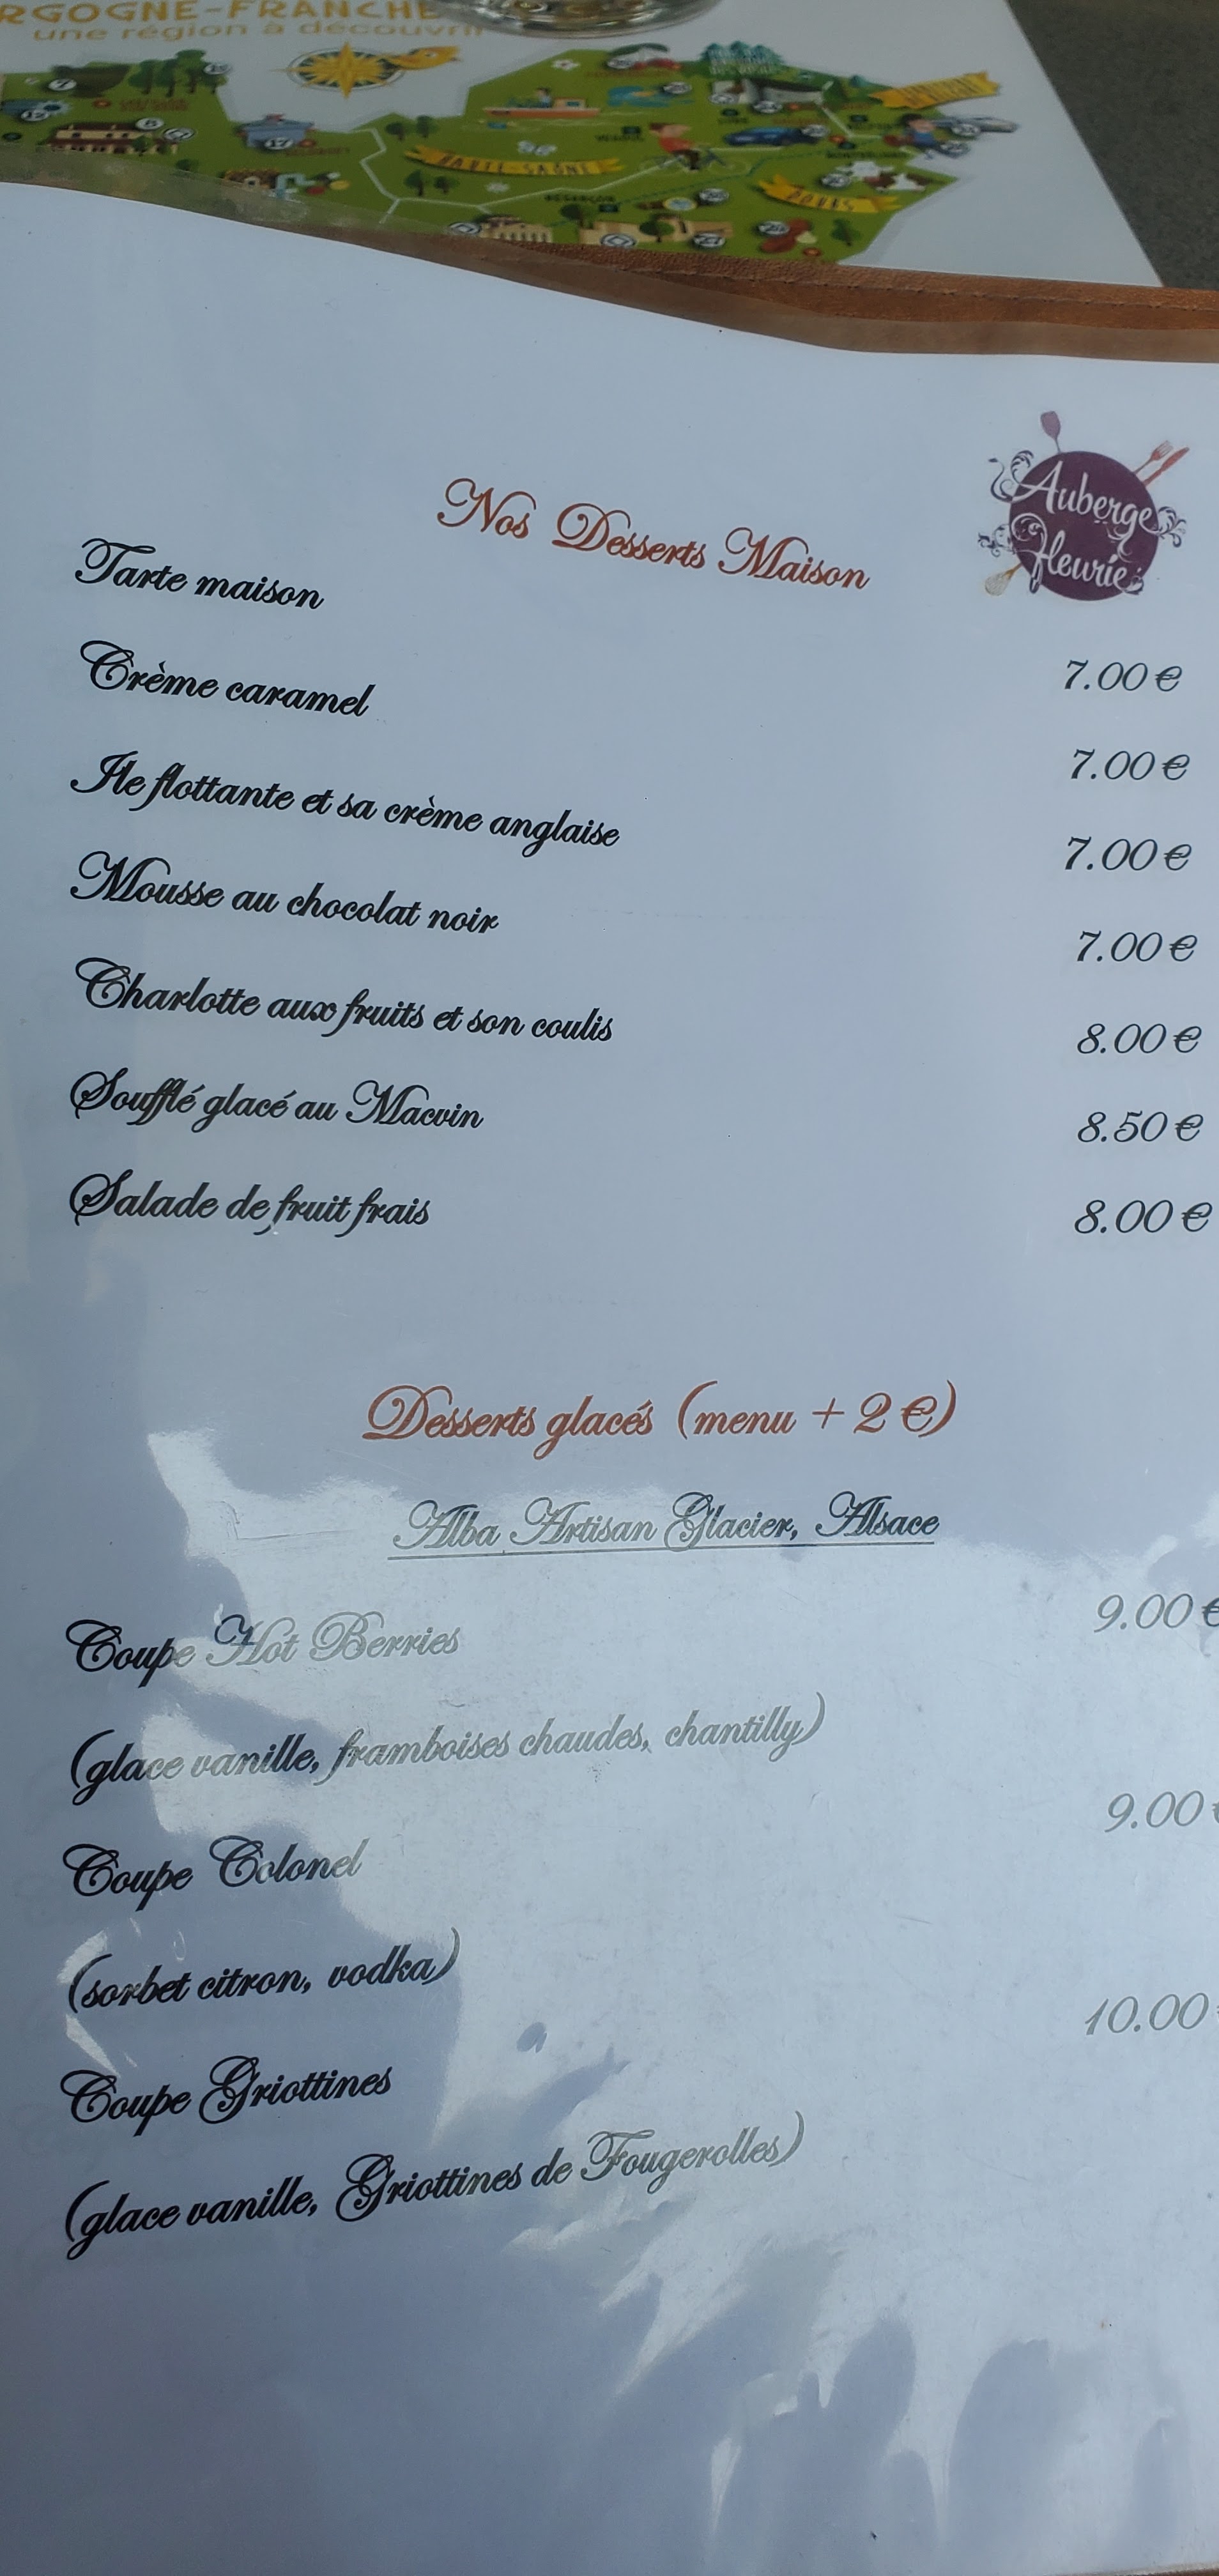 RGOGNE-FRANCHE
une région à découvrir
HAUTE-SAÔNE
DOUBS
17
Auberge
fleurie
Nos Desserts Maison
Tarte maison 7.00 €
Crème caramel 7.00 €
Ile flottante et sa crème anglaise 7.00 €
Mousse au chocolat noir 7.00 €
Charlotte aux fruits et son coulis 8.00 €
Soufflé glacé au Macvin 8.50 €
Salade de fruit frais 8.00 €
Desserts glacés (menu + 2 €)
Alba Artisan Glacier, Alsace
Coupe Hot Berries 9.00 €
(glace vanille, framboises chaudes, chantilly)
Coupe Colonel 9.00 €
(sorbet citron, vodka)
Coupe Griottines 10.00
(glace vanille, Griottines de Fougerolles)